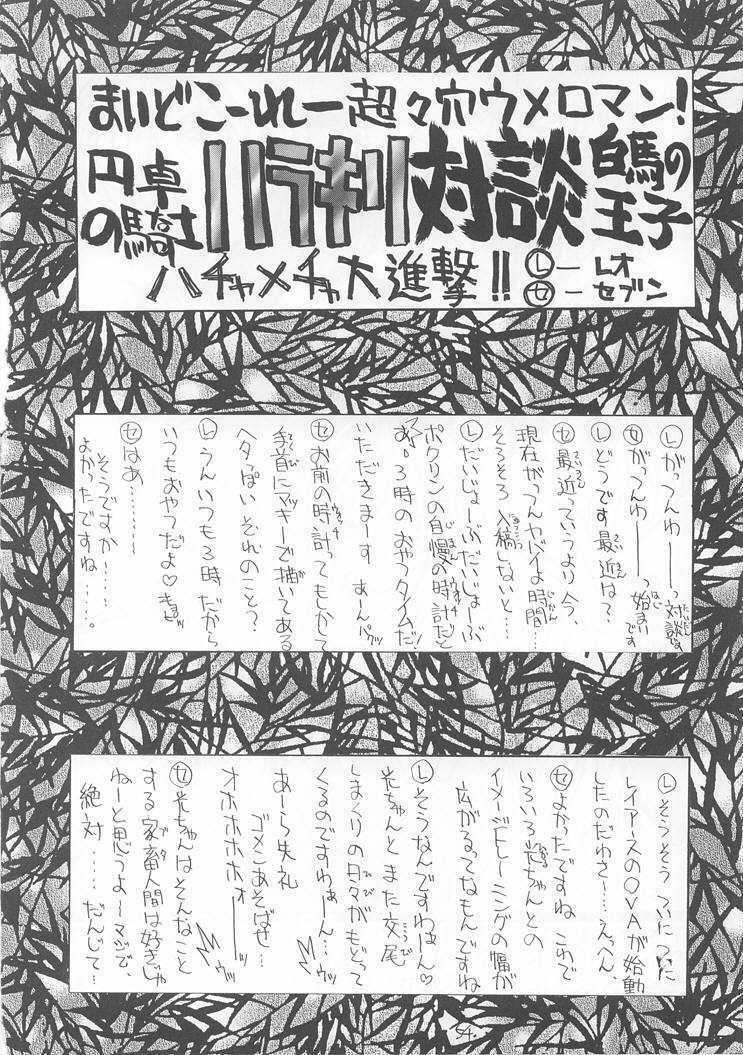 まいどこーれー超々穴ウメロマン!
円卓の騎士 ハラキリ対談 白馬の王子
ハチャメチャ大進撃!!
Ⓛ― レオ
セ― セブン
Ⓛがっつんわ――っ対談
セがっつんわ――っ始まいです
Ⓛどうです最近は?
セ最近っていうより今、
現在がっつんヤバイよ時間…
そろそろ入稿しないと…
Ⓛだいじょーぶだいじょーぶ
ポクリンの自慢の時計だと
あ、3時のおやつタイムだ!
いただきまーす あーんパクッ
セお前の時計ってもしかして
手首にマッキーで描いてある
ヘタっぽいそれのこと?
Ⓛうんいつも3時だから
いつもおやつだよ♡
セはあ…………
そうですか!…
よかったですね
……。
Ⓛそうそうついについに
レイアースのOVAが始動
したのだわさ!…えっへん
セよかったですねこれで
いろいろ光ちゃんとの
イメージトレーニングの幅が
広がるってなもんですね
Ⓛそうなんですわほーん♡
光ちゃんとまた交尾
しまくりの日々がもどって
くるのですわぁーん…
あーら失礼
ゴメンあそばせ…
オホホホホォ――
セ光ちゃんはそんなこと
する家畜人間は好きじゃ
ねーと思うよーマジで、
絶対……だんじて…
54